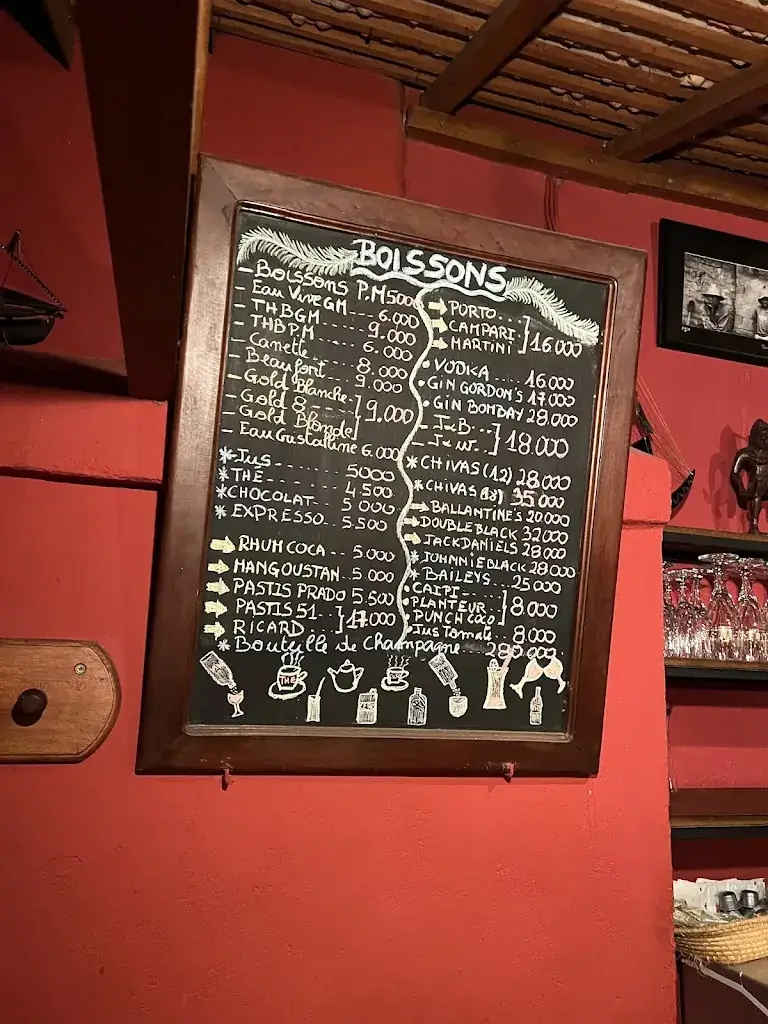 BOISSONS
- Boissons P.M 5000
- Eau Vive GM ---- 6.000
- THB GM ------- 9.000
- THB P.M ------ 6.000
- Canette ------ 8.000
- Beaufort ---- 9.000
- Gold Blanche-
- Gold 8 --- ] 9.000
- Gold Blonde
- Eau Cristalline 6.000
*Jus ------- 5000
*THÉ ------- 4.500
*CHOCOLAT--- 5 000
* EXPRESSO.. 5.500
RHUM COCA -- 5.000
MANGOUSTAN.. 5 000
PASTIS PRADO 5.500
PASTIS 51
RICARD ] 17.000
* Bouteille de Champagne --- 280.000
PORTO..
CAMPARI
MARTINI ] 16.000
• VODKA.... 16.000
• GIN GORDON'S 17.000
• GIN BOMBAY 28.000
- J&B ---
- J.W. -- ] 18.000
* CHIVAS (12) 28.000
* CHIVAS (18) 35.000
BALLANTINE'S 20.000
DOUBLE BLACK 32000
JACK DANIELS 28000
* JOHNNIE BLACK 28000
* BAILEYS ... 25 000
• CAIPI --
• PLANTEUR
• PUNCH COCO ] 8.000
• Jus Tomate. 8.000
THE